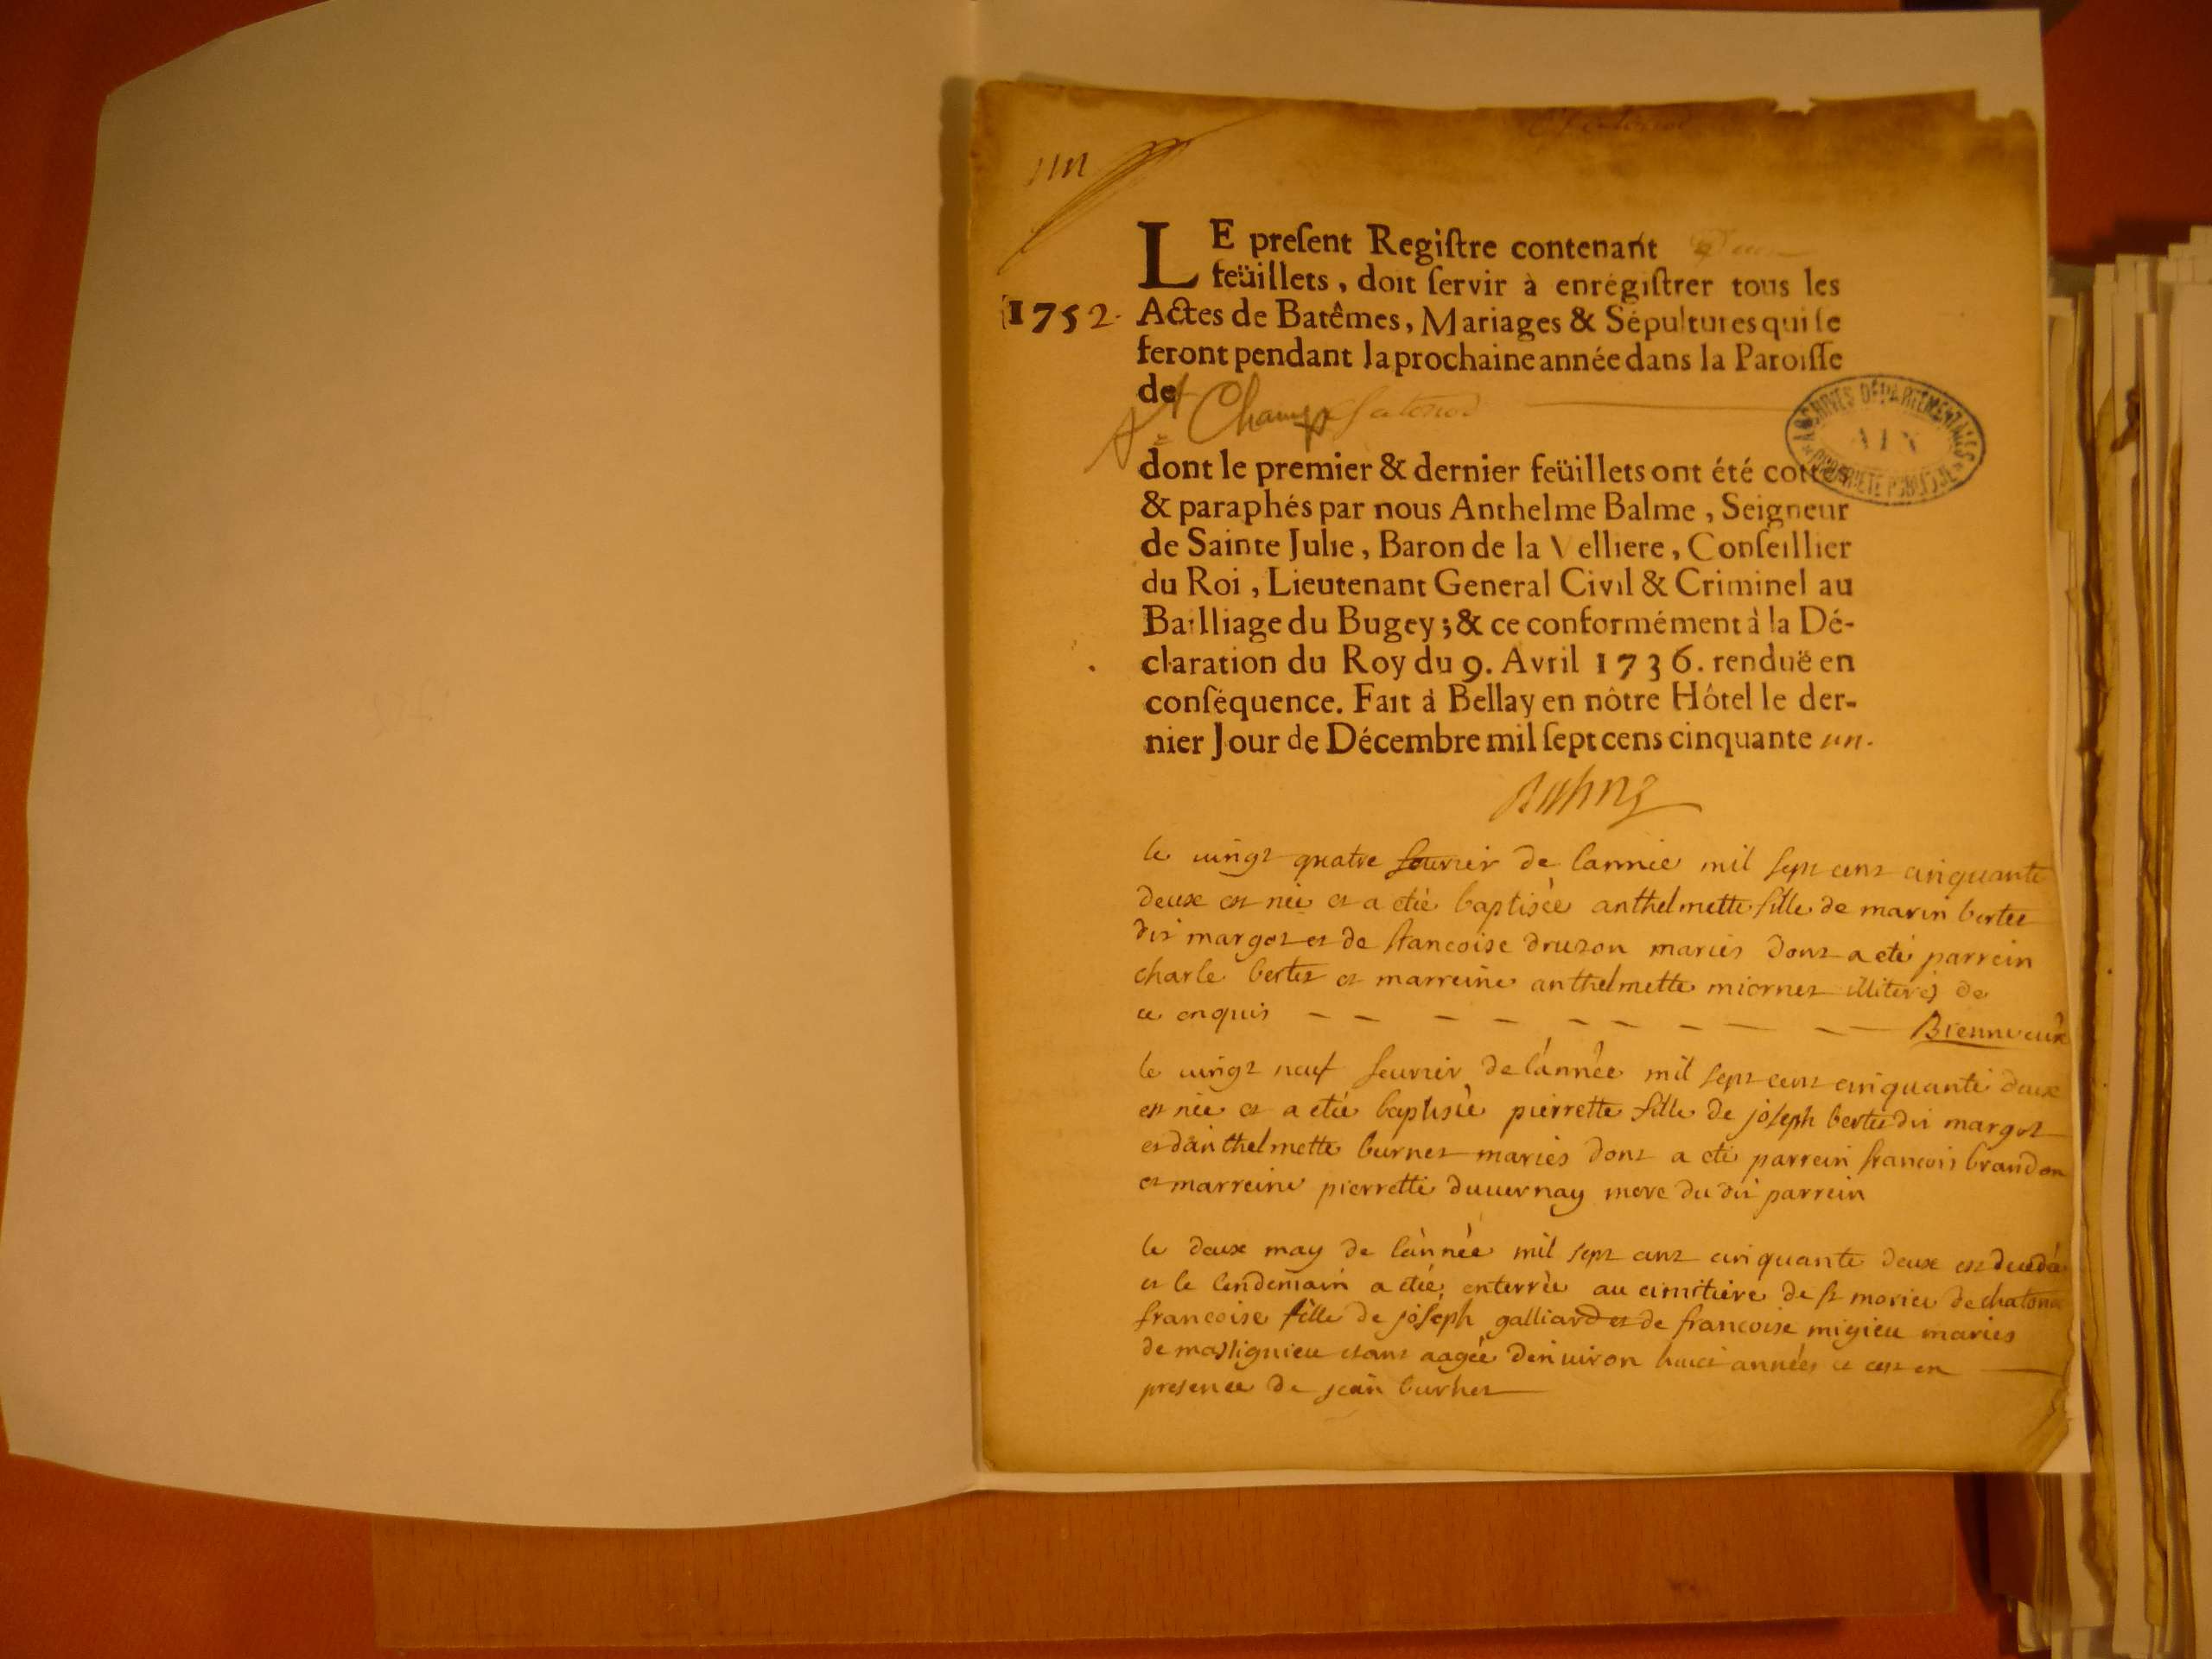 un
LE preſent Regiſtre contenant
feüillets, doit ſervir à enrégiſtrer tous les
1752. Actes de Batêmes, Mariages & Sépultures qui ſe
feront pendant la prochaine année dans la Paroiſſe
de
St Champ Chatonod
dont le premier & dernier feüillets ont été cottés
& paraphés par nous Anthelme Balme, Seigneur
de Sainte Julie, Baron de la Velliere, Conſeillier
du Roi, Lieutenant General Civil & Criminel au
Bailliage du Bugey; & ce conformément à la Dé-
claration du Roy du 9. Avril 1736. renduë en
conſéquence. Fait à Bellay en nôtre Hôtel le der-
nier Jour de Décembre mil ſept cens cinquante un.
ARCHIVES DÉPARTEMENTALES
AIN
PROPRIÉTÉ PUBLIQUE
le vingt quatre feurier de lannée mil sept cent cinquante
deux est née et a etée baptisée anthelmette fille de marin bertet
dit margot et de francoise druzon mariés dont a eté parrein
charle bertet et marreine anthelmette miornet illiterés de
ce enquis Brenne curé
le vingt neuf feurier de lánnée mil sept cent cinquante deux
est née et a etée baptisée pierrette fille de joseph bertet dit margot
et dánthelmette burnet mariés dont a eté parrein francois brandon
et marreine pierrette duuernay mere du dit parrein
le deux may de lánnée mil sept cent cinquante deux est
et le lendemain a etée enterrée au cimitiere de st morice de chatono
francoise fille de joséph galliard et de francoise migieu mariés
de massignieu etant aagée denuiron années ce cest en
presence de jean burnet